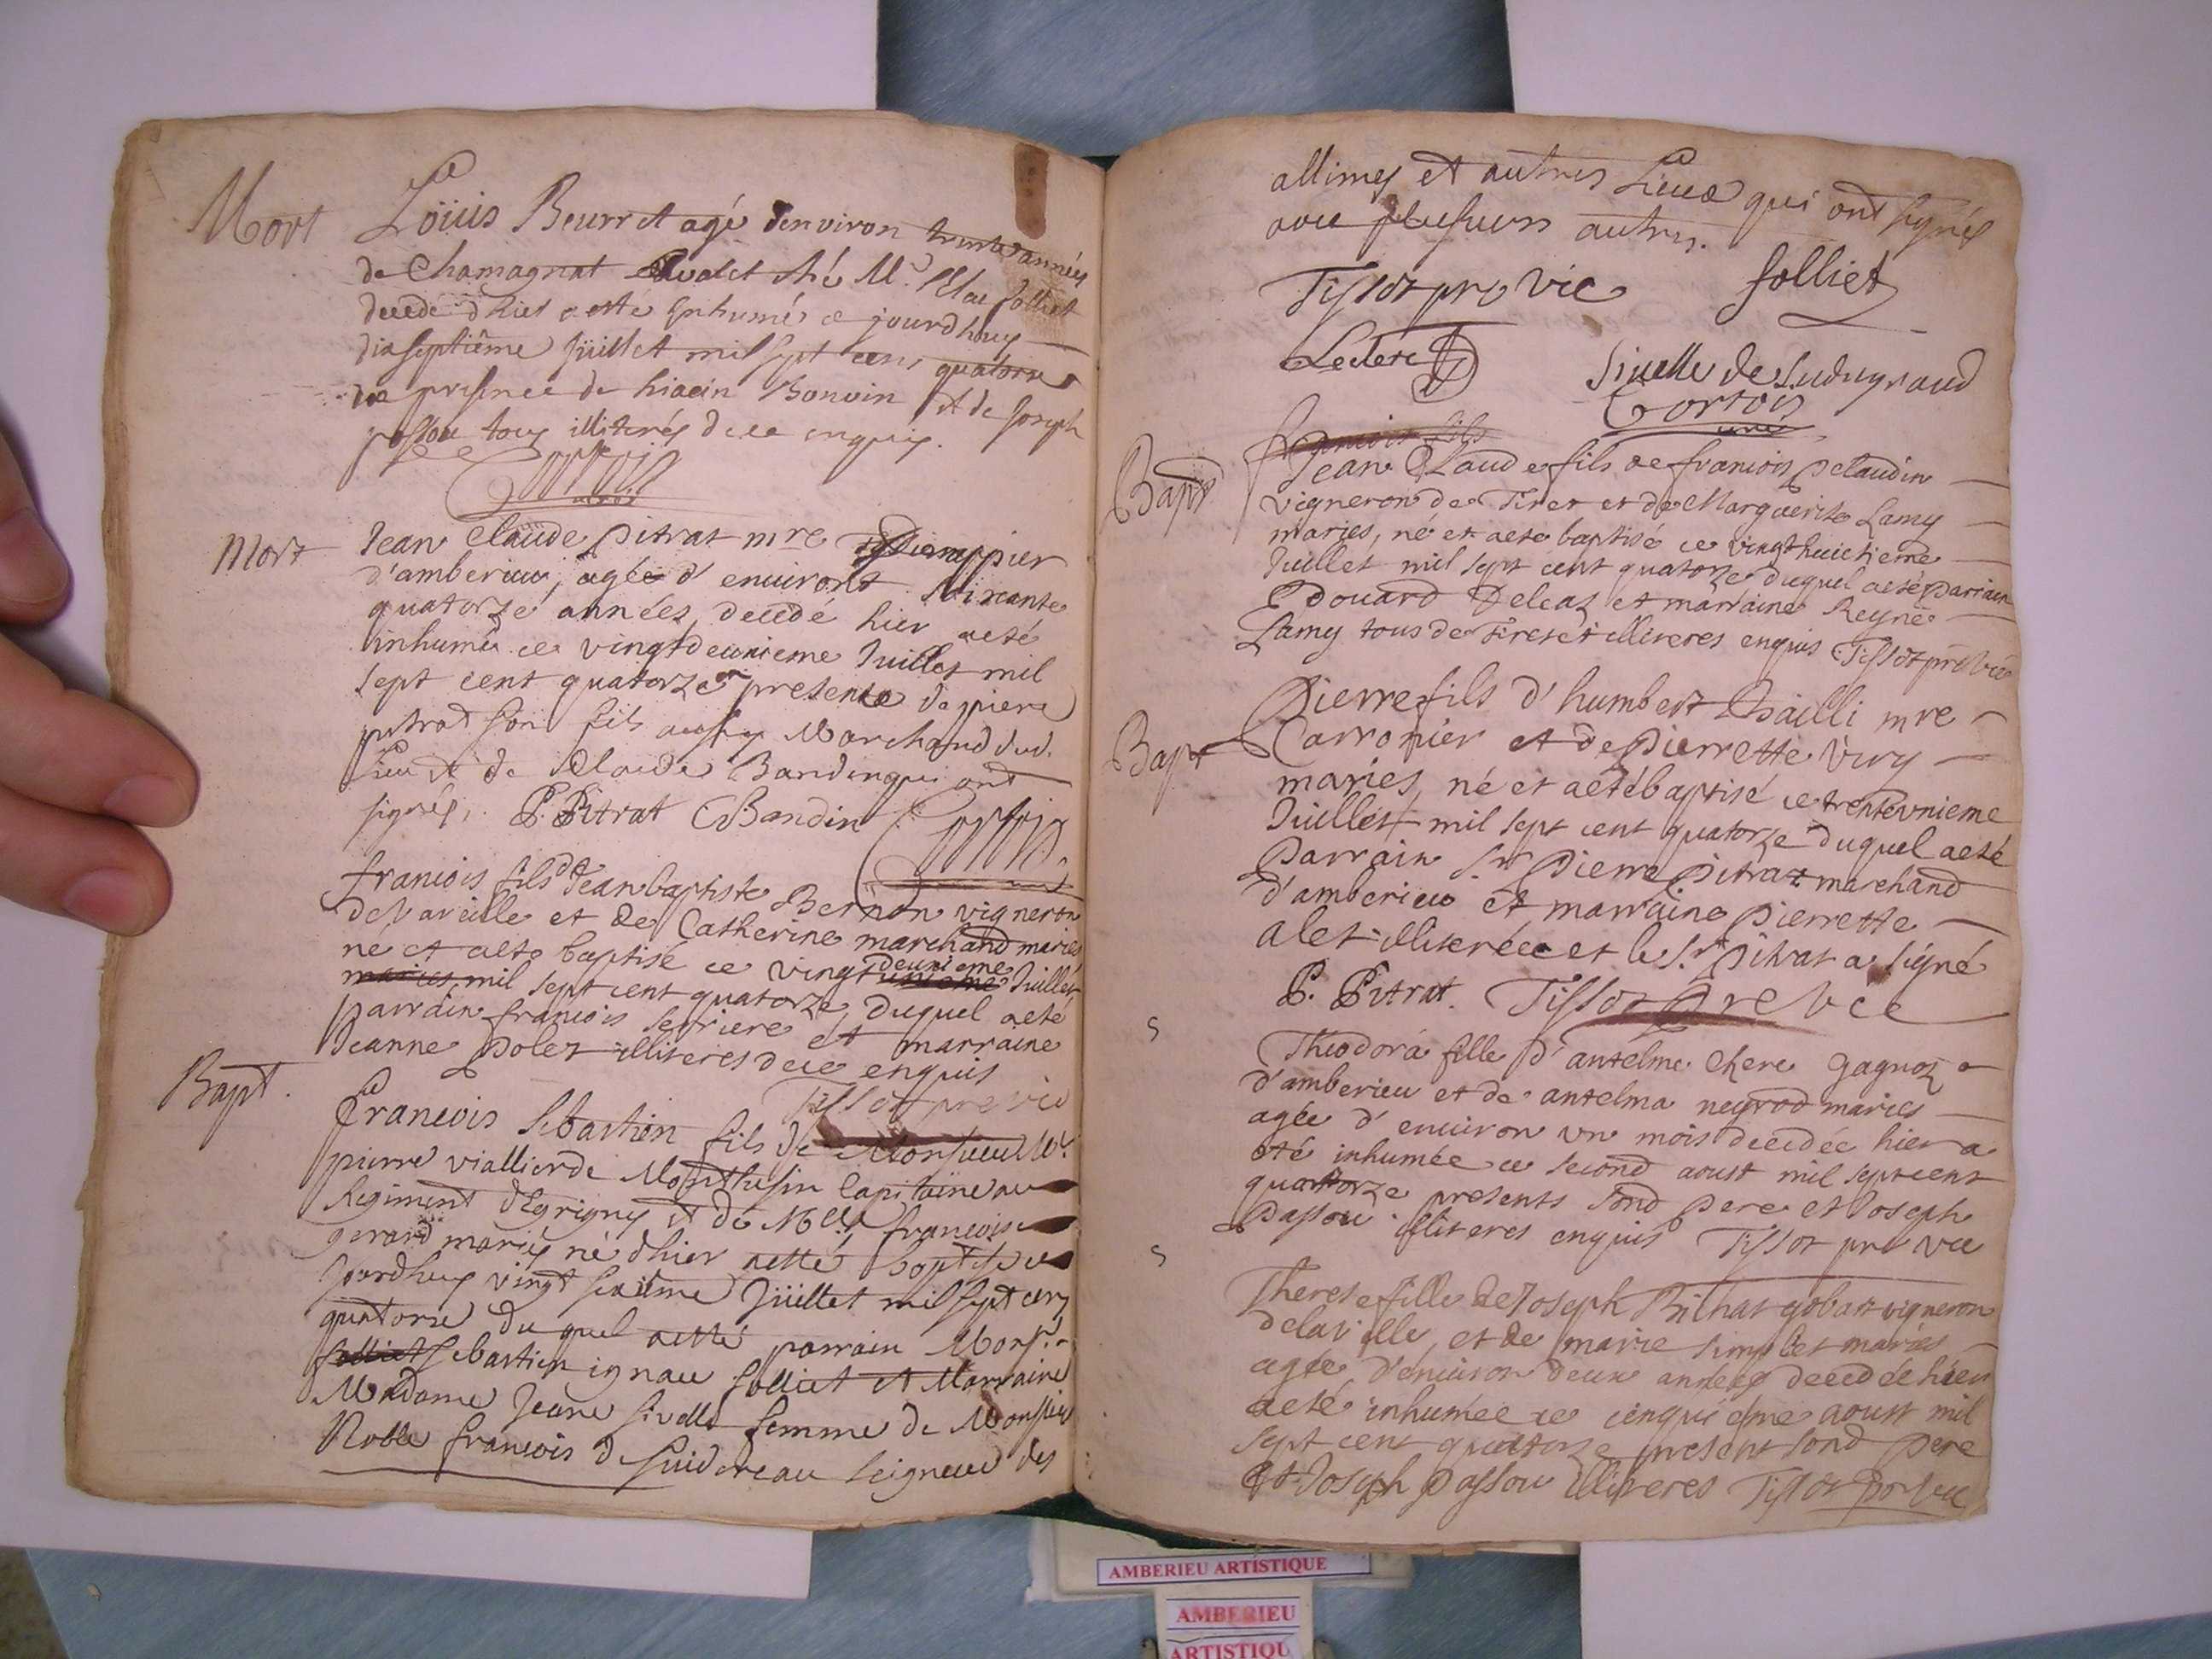 Mort
Loüis Beurret agé d'environ trente années
de Chamagnat valet ché Mr. Folliet
decedé d'hier et esté inhumé ce jourd'huy
dixseptiême Jüillet mil sept cens quatorze
en presence de hiacin Bonvin et de Joseph
passou tous illiterés de ce enquis.
Mort
Jean Claude pitrat mre
d'amberieu, agée d'environt soixante
quatorze années, decedé hier aeté
inhumé ce vingtdeuxieme Juillet mil
sept cent quatorze presence de piere
pitrat son fils aussy Marchand dud.
lieu et de Claude Bandin qui ont
signés, P. Pitrat CBandin
francois fils de Jean baptiste Bernon vigneron
de Vareille et de Catherine marchand maries
né et aeté baptisé ce vingt deuxieme Juillet
mil sept cent quatorze, duquel aeté
parrain francois serriere et marraine
Jeanne poler illiteres dece enquis
Tissot pre vic
Bapt.
Francois Sebastien fils de Monsieur Mr.
pierre viallier de Monthusin Capitaine au
Regiment d'Egrigny et de Mlle francoise
gerard mariés né d'hier aetté baptisé ce
jourdhuy vingt sixième Jüillet mil sept cens
quatorze du quel aetté parrain Monsr.
Sebastien ignace folliet et Marraine
Madame Jeane sivelle femme de Monsieur
Noble francois de Suidereau seigneur des
allimes et autres Lieux qui ont signés
avec plusieurs autres.
Tissot pre vic folliet
Leclerc Sivelle de Sudugraud
Cortois
curé
Bapt
francois fils
Jean Claude fils de francois pelaudin
vigneron de Tiret et de Marguerite Lamy
maries, né et aeté baptisé ce vingthuictieme
Juillet mil sept cent quatorze duquel aeté parrain
Edouard Deleaz et marraine Reyne
Lamy tous de Tiret et illiteres enquis Tissot pre vic
Bapt
Pierre fils d'humbert Chailli mre
Carronier et de pierrette Very
maries, né et aetébaptisé ce trentevnieme
Juillet mil sept cent quatorze duquel aeté
parrain Sr. pierre pitrat marchand
d'amberieu et marraine pierrette
alet illiterée et le Sr. pitrat a signé
P. Pitrat. Tissot pre vic
S
Théodora fille d'antelme Chere gagnoz
d'amberieu et de antelma negrod maries
agée d'environ vn mois decedée hier a
été inhumée ce second aoust mil septcent
quatorze presents sond pere et Joseph
passou illiteres enquis Tissot pre vic
S
Therese fille de Joseph Bilhat gobat vigneron
delaville, et de marie simplet maries
agée d'environ deux années decedée hier
aeté inhumée ce cinquieme aoust mil
sept cent quatorze present sond pere
et Joseph passou illiteres Tissot pre vic
AMBERIEU ARTISTIQUE
AMBERIEU
ARTISTIQU